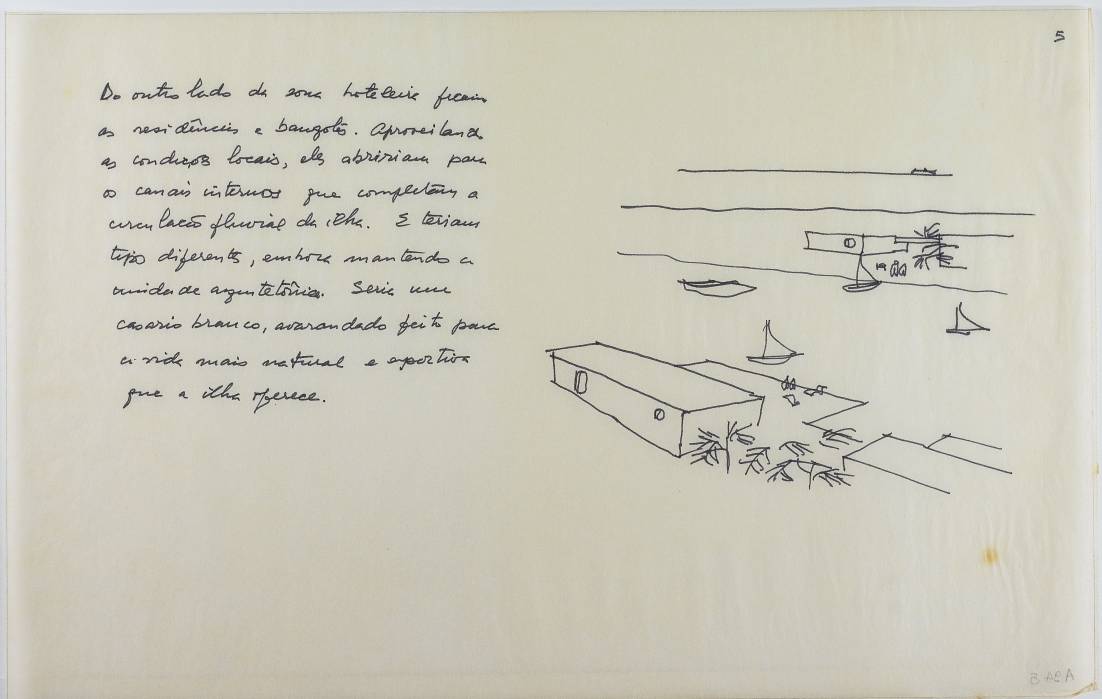 5
Do outro lado da zona hoteleira ficam
as residências e bangolôs. Aproveitando
as condições locais, eles abririam para
os canais internos que completam a
circulação fluvial da ilha. E teriam
tipo diferentes, embora mantendo a
unidade arquitetônica. Seria um
casario branco, avarandado feito para
a vida mais natural e esportiva
que a ilha oferece.